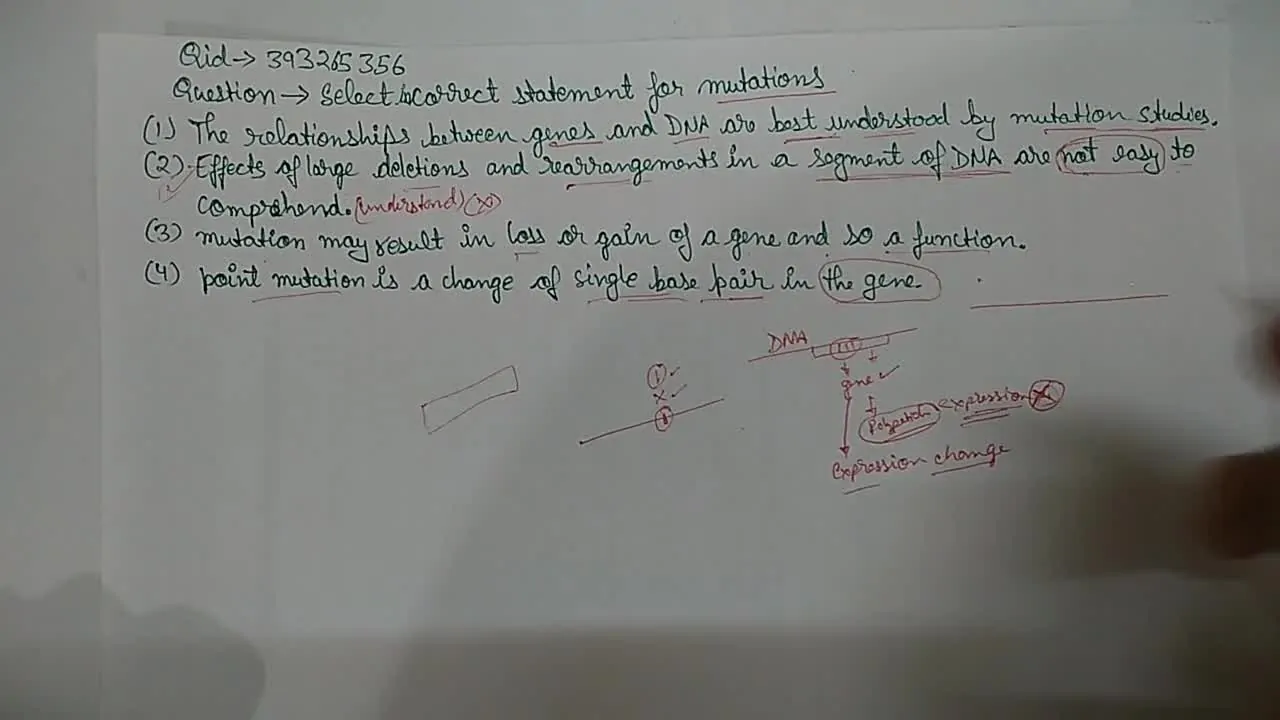 Qid→ 393265356
Question → Select incorrect statement for mutations
(1) The relationships between genes and DNA are best understood by mutation studies.
(2) Effects of large deletions and rearrangements in a segment of DNA are not easy to
comprehend. (understand) (x)
(3) mutation may result in loss or gain of a gene and so a function.
(4) point mutation is a change of single base pair in the gene.
DNA
gene ✓
expression
expression change